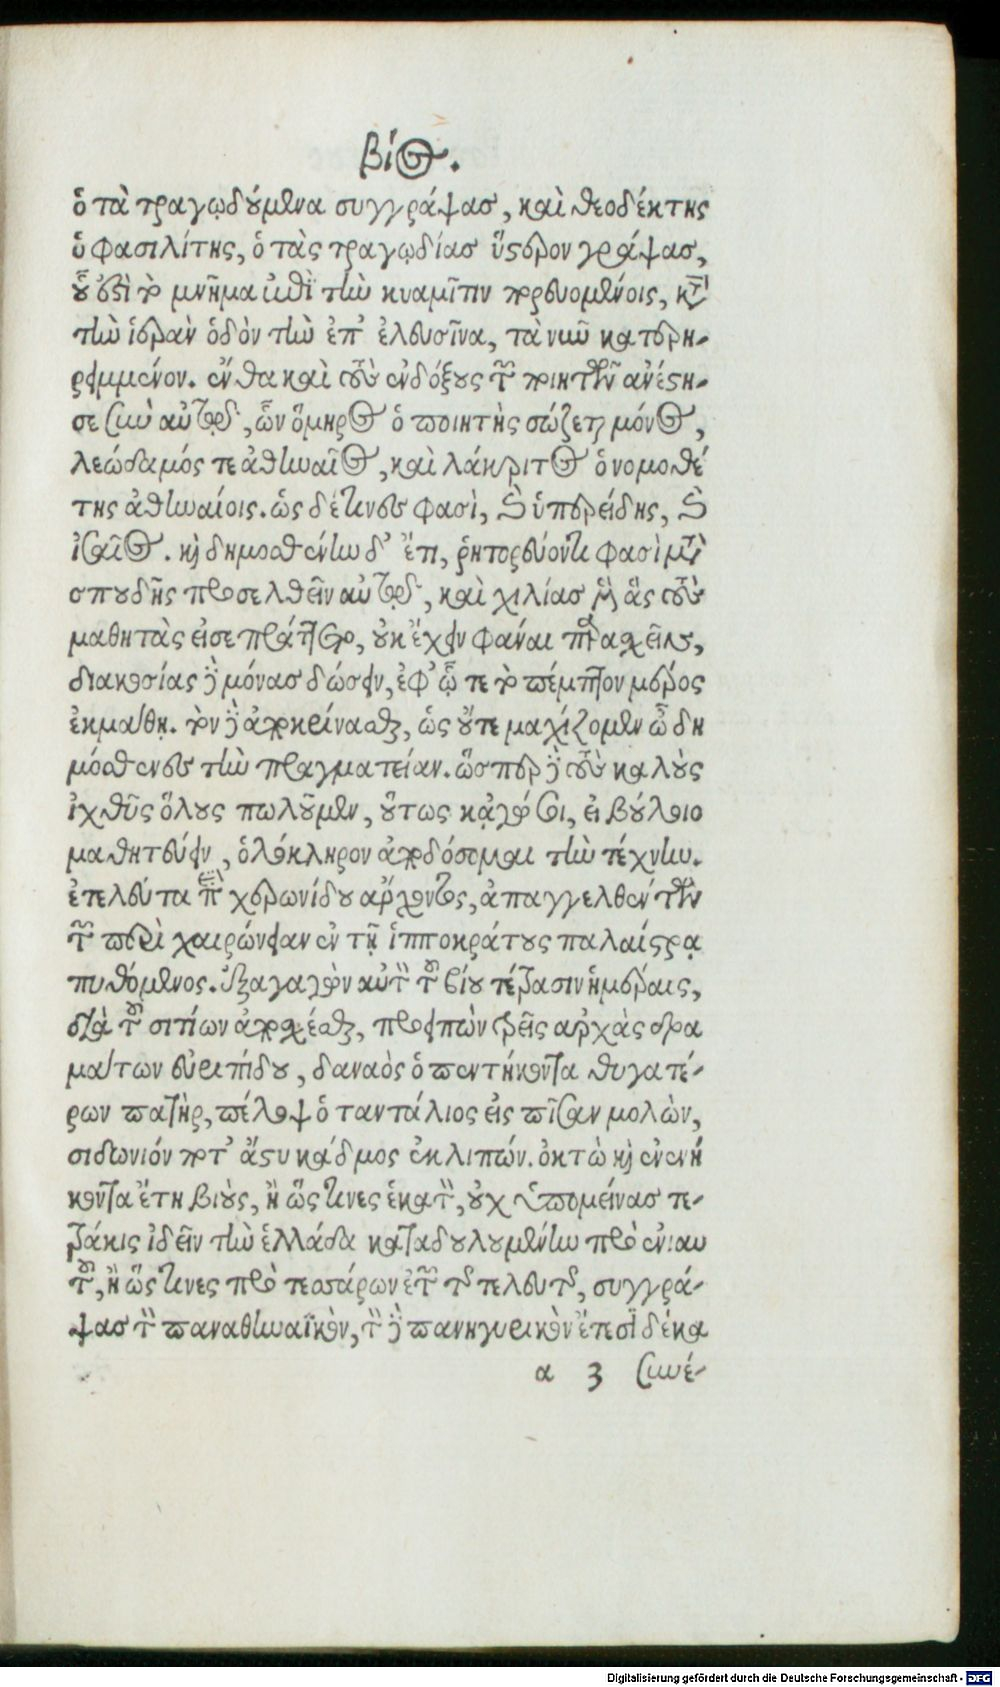 βίος.
ὁ τὰ τραγῳδούμενα συγγράψας, καὶ θεοδέκτης
ὁ φασιλίτης, ὁ τὰς τραγῳδίας ὕστερον γράψας,
οὗ ἐστὶ τὸ μνῆμα ἐπὶ τὴν κυαμῖτιν πορευομένοις, κατὰ
τὴν ἱερὰν ὁδὸν τὴν ἐπ' ἐλευσῖνα, τὰ νῦν κατερη-
ριμμένον. ἔνθα καὶ τοὺς ἐνδόξους τῶν ποιητῶν ἀνέστη-
σε σὺν αὐτῷ, ὧν ὅμηρος ὁ ποιητὴς σώζεται μόνος,
λεώδαμός τε ἀθηναῖος, καὶ λάκριτος ὁ νομοθέ
της ἀθηναίοις. ὡς δέ τινες φασὶ, καὶ ὑπερείδης, καὶ
ἰσαῖος. καὶ δημοσθένην δ' ἔτι, ῥητορεύοντι φασὶ μετὰ
σπουδῆς προσελθεῖν αὐτῷ, καὶ χιλίας μὲν ἃς τοὺς
μαθητὰς εἰσεπράττετο, οὐκ ἔχειν φάναι παρασχεῖν,
διακοσίας δὲ μόνας δώσειν, ἐφ' ᾧ τε τὸ πέμπτον μέρος
ἐκμάθῃ. τὸν δὲ ἀποκρίνασθαι, ὡς οὔτε μαχίζομεν ὦ δη
μόσθενες τὴν πραγματείαν. ὥσπερ δὲ τοὺς καλοὺς
ἰχθῦς ὅλους πωλοῦμεν, οὕτως κἀγώ σοι, εἰ βούλοιο
μαθητεύειν, ὁλόκληρον ἀποδόσομαι τὴν τέχνην.
ἐτελεύτα ἐπὶ χερωνίδου ἄρχοντος, ἀπαγγελθέντων
τῶν περὶ χαιρώνειαν ἐν τῇ ἱπποκράτους παλαίστρᾳ
πυθόμενος. ἐξαγαγὼν αὑτὸν τοῦ βίου τέτρασιν ἡμέραις,
διὰ τοῦ σιτίων ἀποσχέσθαι, προειπὼν τρεῖς ἀρχὰς δρα
μάτων εὐριπίδου, δαναὸς ὁ πεντήκοντα θυγατέ-
ρων πατὴρ, πέλοψ ὁ ταντάλιος εἰς πῖσαν μολὼν,
σιδώνιόν ποτ' ἄστυ κάδμος ἐκλιπών. ὀκτὼ καὶ ἐνενή
κοντα ἔτη βιοὺς, ἢ ὥς τινες ἑκατὸν, οὐχ ὑπομείνας τε-
τράκις ἰδεῖν τὴν ἑλλάδα καταδουλουμένην πρὸ ἐνιαυ
τοῦ, ἢ ὥς τινες πρὸ τεσσάρων ἐτῶν τῆς τελευτῆς, συγγρά-
ψας τὸν παναθηναϊκὸν, τὸν δὲ πανηγυρικὸν ἔτεσι δέκα
α 3 συνέ-
Digitalisierung gefördert durch die Deutsche Forschungsgemeinschaft - DFG